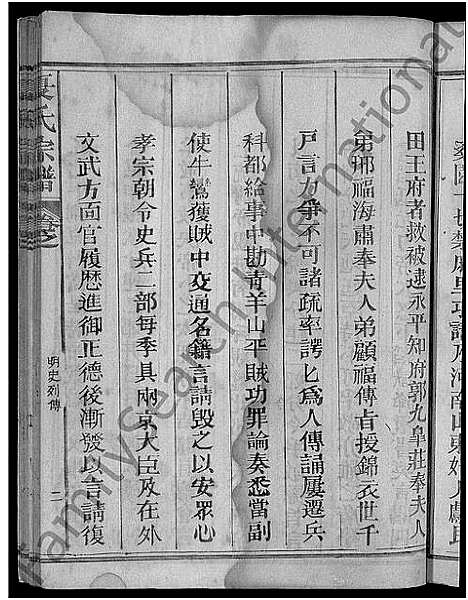 田王府者救被逮永平知府郭九皐莊奉夫人
弟邢福海肅奉夫人弟顧福傳旨授錦衣世千
戸言力爭不可諸疏率諤匕爲人傳誦屢遷兵
科都給事中勘青羊山平賊功罪論奏悉當副
使牛鸞獲賊中交通名籍言請毁之以安眾心
孝宗朝令史兵二部每季具兩京大臣及在外
文武方面官履歷進御正德後漸發以言請復
夏氏宗譜 卷之
明史列傳
二
FamilySearch International